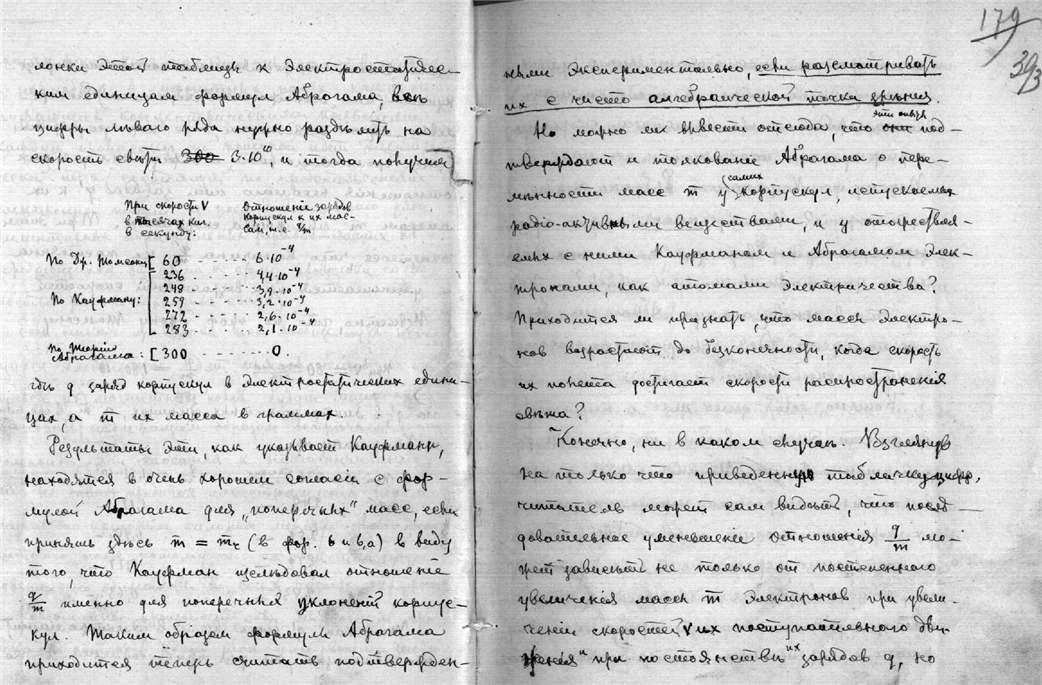 лонки этой таблицы к электростатичес-
ким единицам формул Абрагама, все
цифры леваго ряда нужно разделить на
скорость света 300 3·10¹⁰, и тогда получим
При скорости V
в тысячах кил.
в секунду:
Отношение зарядов
корпускул к их мас-
сам, т.е. q/m
По Др. Томсону [ 60 ........ 6·10⁻⁴
236 ........ 4,4·10⁻⁴
248 ........ 3,9·10⁻⁴
По Кауфману: 259 ........ 3,2·10⁻⁴
272 ........ 2,6·10⁻⁴
283 ........ 2,1·10⁻⁴
По теории
Абрагама: [ 300 ........ 0.
гдѣ q заряд корпускул в электростатических едини-
цах, а m их масса в граммах.
Результаты эти, как указывает Кауфманн,
находятся в очень хорошем согласіи с фор-
мулой Абрагама для „поперечных" масс, если
принять здѣсь m = mₓ (в фор. 6 и 6,а) в виду
того, что Кауфман изслѣдовал отношеніе
q/m именно для поперечных уклоненій корпус-
кул. Таким образом формулы Абрагама
приходится теперь считать подтвержден-
179
393
ными экспериментально, если разсматривать
их с чисто алгебраической точки зрѣнія.
Но можно ли вывести отсюда, что они эти опыты под-
тверждают и толкованіе Абрагама о пере-
мѣнности масс m у самих корпускул, испускаемых
радіо-активными веществами, и у отождествля-
емых с ними Кауфманом и Абрагамом элек-
тронами, как атомами электричества?
Приходится ли признать, что массы электро-
нов возрастают до безконечности, когда скорость
их полета достигает скорости распространенія
свѣта?
Конечно, ни в каком случаѣ. Взглянув
на только что приведенную табличку цифр,
читатель может сам видѣть, что послѣ-
довательное уменьшеніе отношенія q/m мо-
жет зависѣть не только от постепеннаго
увеличенія массы m электронов при увели-
ченіи скоростей V их поступательнаго дви-
женія и при постоянствѣ их зарядов q, но